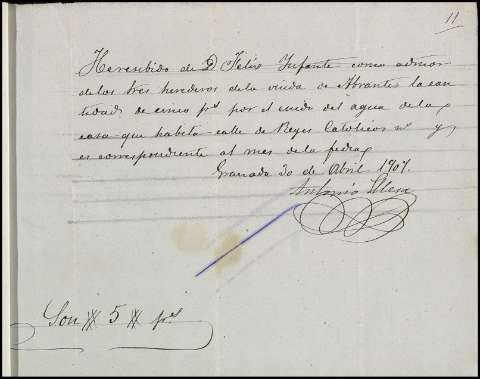 11
He recibido de D. Felix Infante como admor
de los Sres herederos de la viuda de Abrantes la can
tidad de cinco pts por el cuido del agua de la
casa que habita calle de Reyes Catolicos nº y
es correspondiente al mes de la fecha
Granada 30 de Abril 1907.
Antonio
Son # 5 # pts